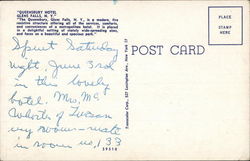 QUEENSBURY HOTEL
GLENS FALLS, N. Y.
"The Queensbury, Glens Falls, N. Y., is a modern, fire
resistive structure offering all of the service, comforts,
and conveniences of a metropolitan hotel. It is
placed in a delightful setting of stately wide-spreading elms,
and faces on a beautiful and spacious park."
POST CARD
PLACE
STAMP
HERE
Spent Saturday
night, June 3rd
in this lovely
hotel. Mrs. Mc
Whorts of Tucson
my room-mate
in room no. 133
39510